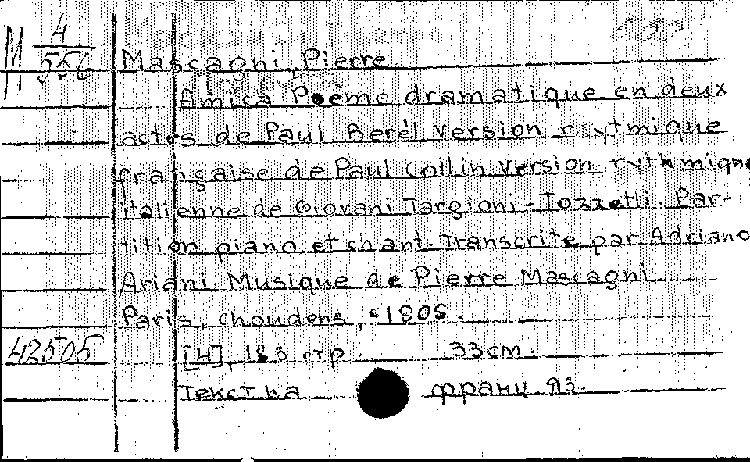 М 4/556
Mascagni, Pierre
Amica Poème dramatique en deux
actes de Paul Berel version rytmique
française de Paul Collin version rythmique
italienne de Giovani Targioni-Tozzetti. Par-
tition piano et chant. Transcrite par Adriano
Ariani Musique de Pierre Mascagni
Paris, Choudens, c1905.
42505 [4], 183 стр 33 см.
Текст на франц яз.